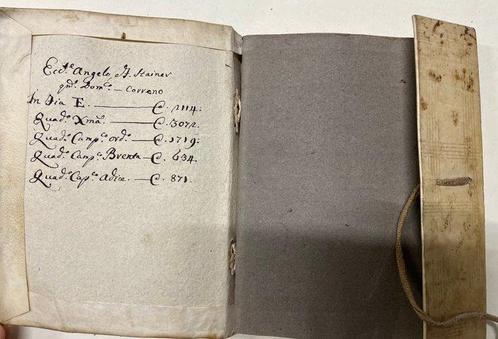 Ecc.te Angelo, H. Stainer
qm̃ Dom.co — Correno
In Dia E. — C. 2114:
Quad.e Xma — C. 3072.
Quad.e Camp.o ord.o — C. 1719:
Quad.e Camp.o Brenta — C. 634.
Quad.e Cap.o Adice. — C. 871.